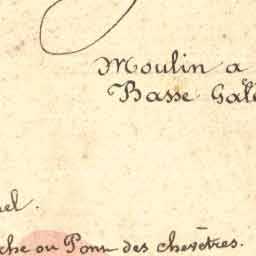 Moulin a
Basse Gal
el.
che ou Pont des chevêtres.